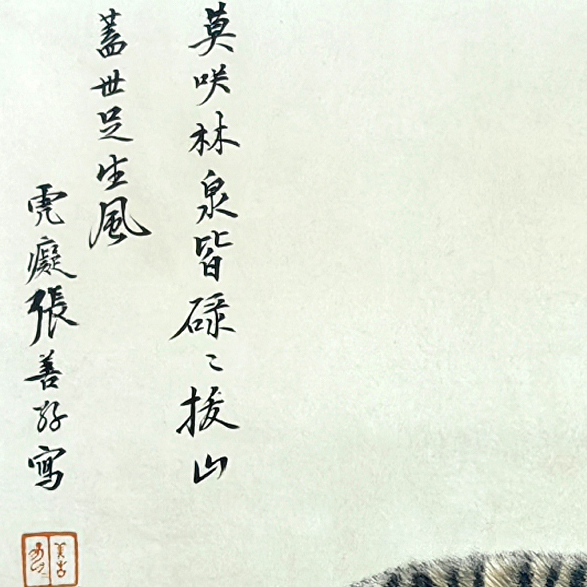 莫咲林泉皆碌〻拔山
蓋世足生風
虎癡張善孖寫